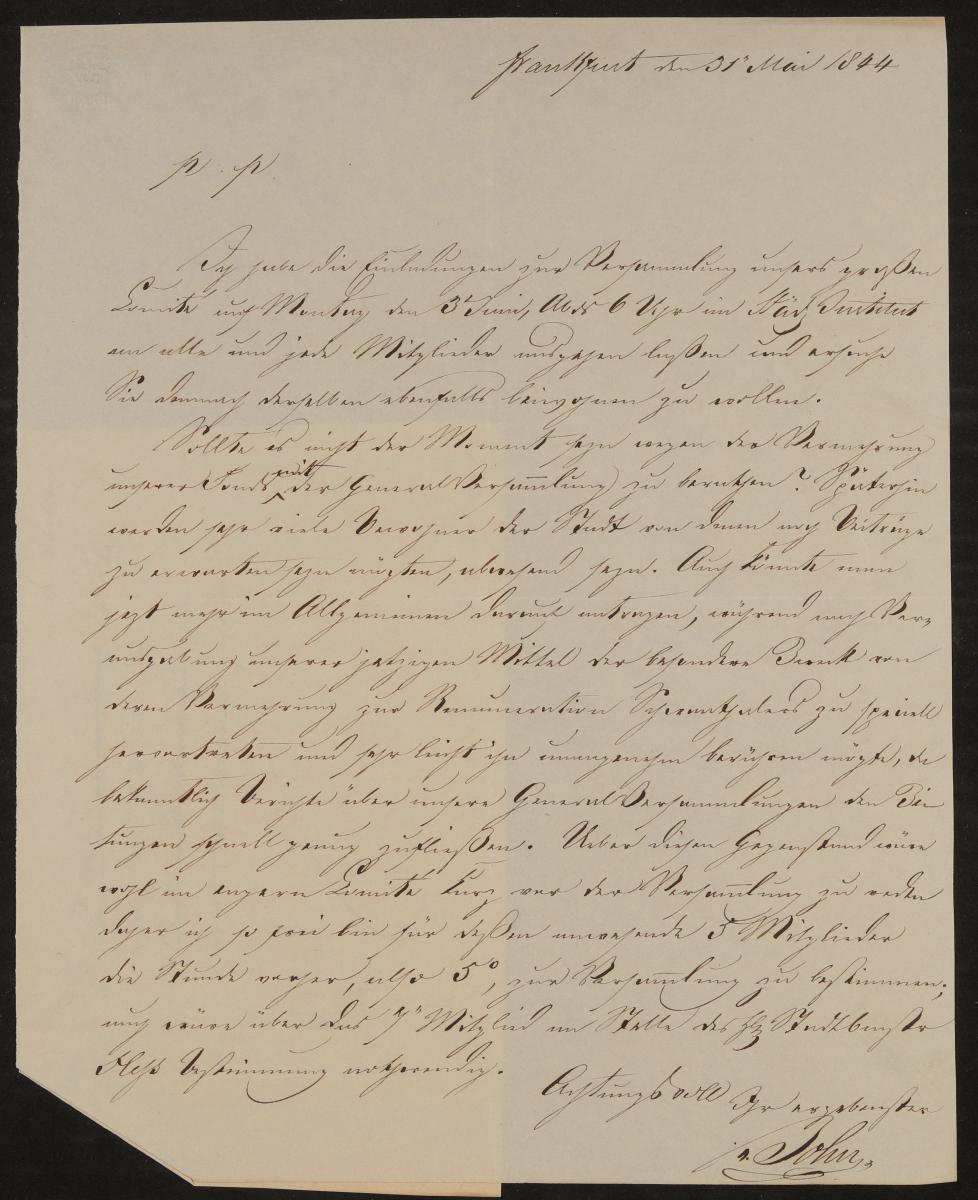 Frankfurt den 31n Mai 1844
p. p.
Ich habe die Einladungen zur Versammlung unsers großen
Comité auf Montag den 3n Juni, Abds 6 Uhr im Städ. Institut
an alle und jede Mitglieder ausgehen laßen und ersuche
Sie demnach derselben ebenfalls beiwohnen zu wollen.
Sollte es nicht der Moment seyn wegen der Vermehrung
unserer Fonds mit der General Versammlung zu berathen? Späterhin
werden sehr viele Bewohner der Stadt von denen noch Beiträge
zu erwarten seyn mögten, abwesend seyn. Auch könnte man
jezt mehr im Allgemeinen darauf antragen, während nach Ver-
ausgabung unserer jetzigen Mittel der besondere Zweck von
deren Vermehrung zur Remuneration Schwanthalers zu speciell
hervortreten und sehr leicht ihn unangenehm berühren mögte, da
bekanntlich Berichte über unsere General Versammlungen den Zei-
tungen schnell genug zufließen. Ueber diesen Gegenstand wäre
wohl im engern Comité kurz vor der Versammlung zu reden
daher ich so frei bin für deßen anwesende 5 Mitglieder
die Stunde vorher, also 5°, zur Versammlung zu bestimmen;
auch wäre über das 7te Mitglied an Stelle des Stadtbaustr
Heß Bestimmung nothwendig.
Achtungsvoll Ihr ergebenster